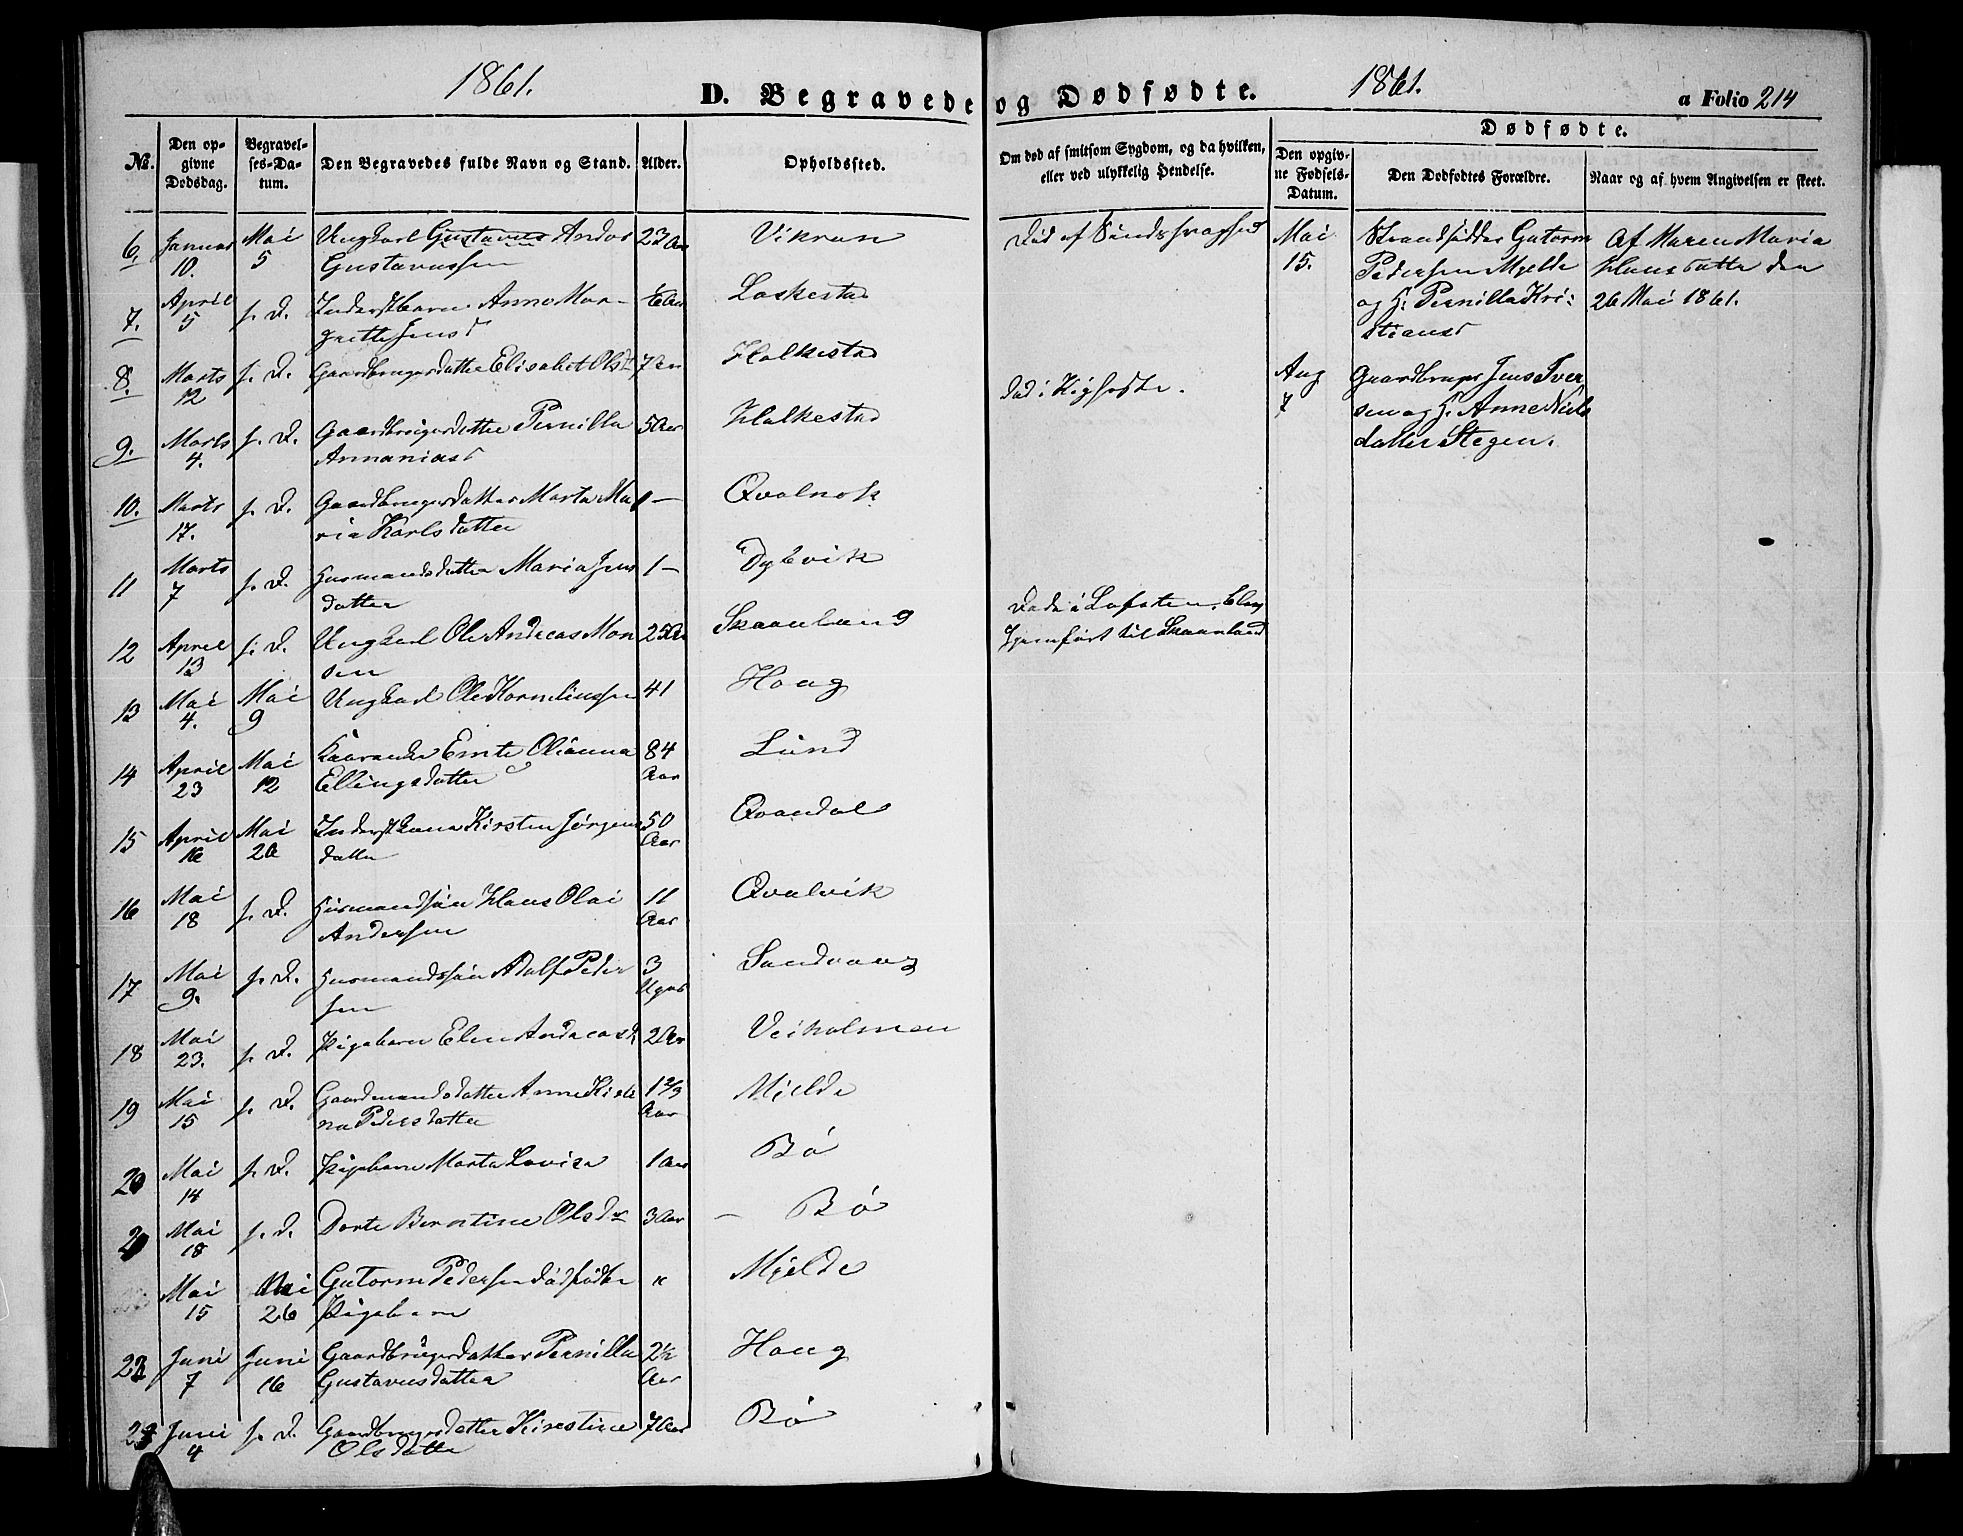 1861.
D. Begravede og Dødfødte.
1861.
a Folio 214
No.
Den opgivne Dødsdag.
Begravelses-Datum.
Den Begravedes fulde Navn og Stand.
Alder.
Opholdssted.
Om død af smitsom Sygdom, og da hvilken,
eller ved ulykkelig Hendelse.
Dødfødte.
Den opgivne Fødsels-Datum.
Den Dødfødtes Forældre.
Naar og af hvem Angivelsen er skeet.
6. Januar 10. Mai 5 Ungkarl Gustavus Andor 23 Aar Vikran
Gustavussen
7. April 5 s. D. Inderstbarn Anne Mar- Laskestad
grethe Jensd
8. Marts 12 s. D. Gaardbrugerdatter Elisabet Olsd 7 Aar Halkestad
9. Marts 4. s. D. Gaardbrugerdatter Pernilla 5 Aar Halkestad
Annaniasd
10. Marts 17. s. D. Gaardbrugerdatter Marta Ma 1 — Qvalnæs
ria Karlsdatter
11 Marts 7 s. D. Husmandsdatter Maria Jens 1 — Dybvik
datter
12 April 13 s. D. Ungkarl Ole Andreas Mon 25 Aar Skaanland
sen
13 Mai 4. Mai 9 Ungkarl Ole Korneliussen 41 Haug
14 April 23 Mai 12 Kaarenke Olianna 84 Aar Lund
Ellingsdatter
15 April 16 Mai 20 Inderstkone Kirsten Jørgens 50 Aar Qvandal
datter
16 Mai 18 s. D. Husmandssøn Hans Olai 11 Aar Qvalvik
Andersen
17 Mai 9. s. D. Husmandssøn Adolf Peder 3 Uger Sandvaag
sen
18 Mai 23. s. D. Pigebarn Elen Andreasd 2 Aar Veiholmen
19 Mai 15 s. D. Gaardmandsdatter Anne Kirsti 1 2/3 Aar Mjelde
na Pedersdatter
20 Mai 14 s. D. Pigebarn Marta Lovisa 1 Aar Bø
2 Mai 18 s. D. Dorte Berntine Olsdr 3 Aar – Bø
Mai 15 Mai 26 Gutorm Pedersen dødfødte " Mjelde
Pigebarn
23 Juni 7 Juni 16 Gaardbrugerdatter Pernilla 2½ Aar Haug
Gustavusdatter
23 Juni 4 s. D. Gaardbrugerdatter Kirestine 7 Aar Bø
Olsdatter
Død af Sindssvaghed
død i Kighoste.
Døde i Lofoten.
hjemført til Skaanland
Mai 15. Strandsidder Gutorm
Pedersen Mjelde
og H. Pernilla Kri-
stiansd
Af Maren Maria
Hansdatter den
26 Mai 1861.
Aug 7 Gaardbruger Jens Iver
sen og H. Anne Niels
datter Stegen.